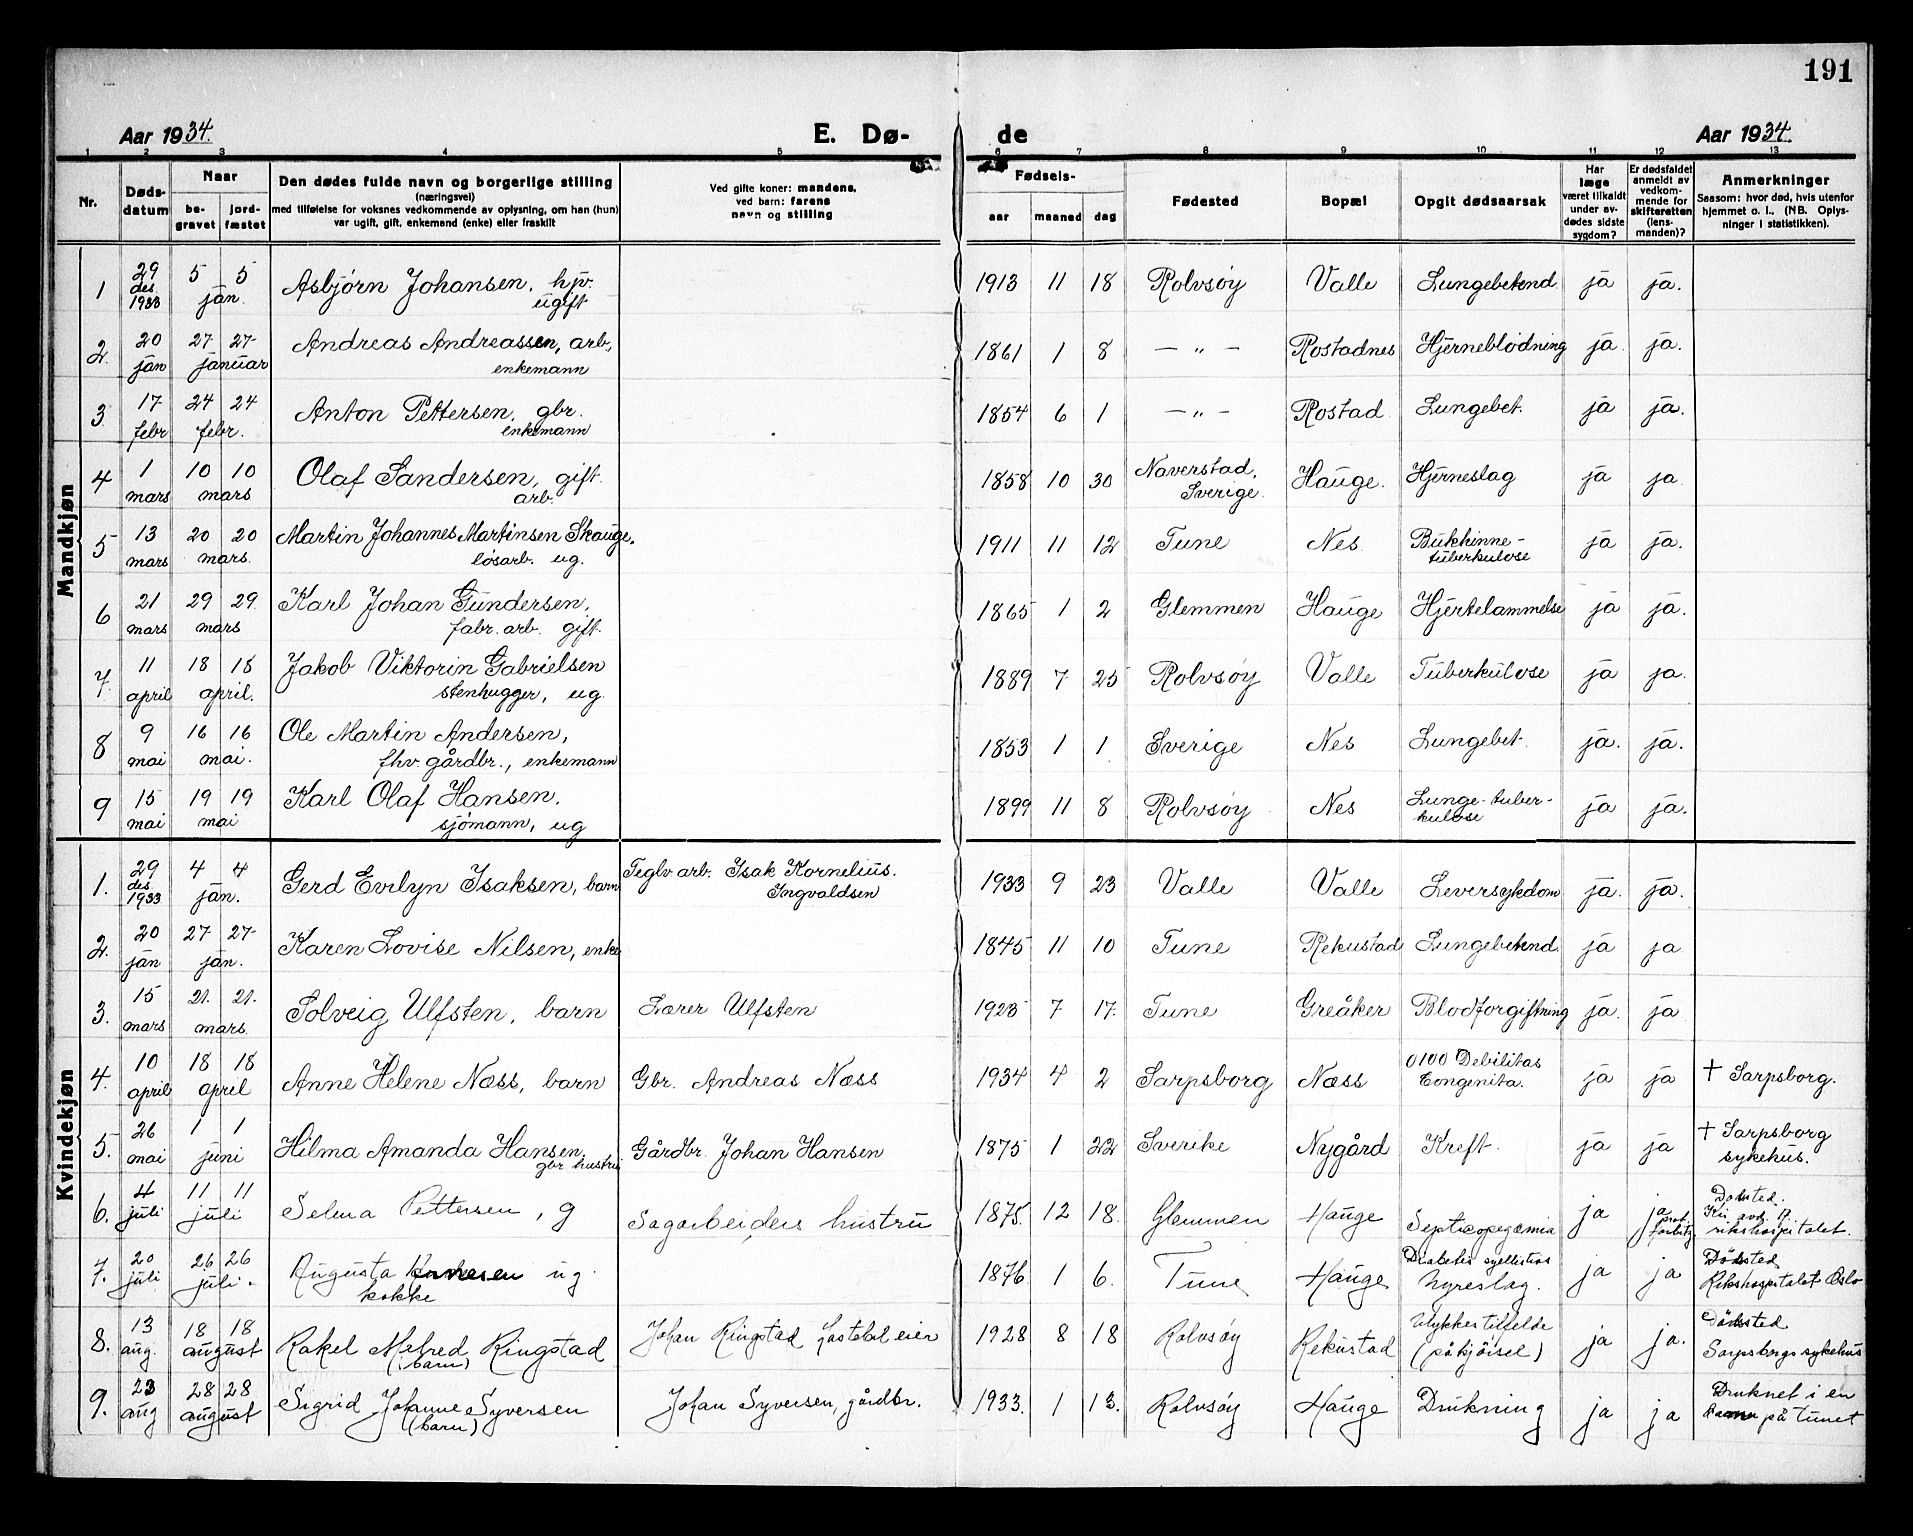 191
Aar 1934. E. Dø- de Aar 1934.
1 2 3 4 5 6 7 8 9 10 11 12 13
Nr. Døds-datum Naar be-gravet jord-fæstet
Den dødes fulde navn og borgerlige stilling
(næringsvei)
med tilføielse for voksnes vedkommende av oplysning, om han (hun)
var ugift, gift, enkemand (enke) eller fraskilt
Ved gifte koner: mandens,
ved barn: farens
navn og stilling
Fødsels- aar maaned dag
Fødested Bopæl Opgit dødsaarsak
Har læge været tilkaldt under av-dødes sidste sygdom?
Er dødsfaldet anmeldt av vedkom-mende for skifteretten (lens-manden)?
Anmerkninger
Saasom: hvor død, hvis utenfor hjemmet o. l., (NB. Oplys-ninger i statistikken).
Mandkjøn
1 29 des. 1933 5 5 jan. Asbjørn Johansen, hjv. ugift 1913 11 18 Rolvsøy Valle Lungebetend ja ja.
2. 20 jan 27 27 januar Andreas Andreassen, arb, enkemann 1861 1 8 — „ — Rostadnes Hjerneblødning ja ja.
3 17 febr 24 24 febr. Anton Pettersen, gbr. enkemann 1854 6 1 — „ — Rostad Lungebet. ja ja.
4 1 mars 10 10 mars Olaf Sandersen, gift. arb. 1858 10 30 Naverstad, Sverige. Hauge. Hjerneslag ja ja
5 13 mars 20 20 mars. Martin Johannes Martinsen Skauge, løsarb. ug. 1911 11 12 Tune Nes Bukhinne-tuberkulose ja ja.
6 21 mars 29 29 mars Karl Johan Gundersen, fabr. arb. gift. 1865 1 2 Glemmen Hauge Hjertelammelse ja ja.
7. 11 april 18 18 april. Jakob Viktorin Gabrielsen stenhugger, ug. 1889 7 25 Rolvsøy Valle Tuberkulose ja ja.
8 9 mai 16 16 mai. Ole Martin Andersen, fhv. gårdbr., enkemann 1853 1 1 Sverige Nes Lungebet. ja. ja.
9 15 mai 19 19 mai Karl Olaf Hansen. sjømann, ug 1899 11 8 Rolvsøy Nes Lunge-tuber-kulose ja ja.
Kvindekjøn
1. 29 des 1933 4 4 jan. Gerd Evelyn Isaksen, barn Teglv arb. Isak Kornelius. Ingvaldsen 1933 9 23 Valle Valle Leversykdom ja. ja.
2. 20 jan 27 27 jan. Karen Lovise Nilsen, enke 1845 11 10 Tune Rekustad Lungebetend ja ja
3. 15 mars 21. 21. mars. Solveig Ulfsten, barn Lærer Ulfsten 1923 7 17. Tune Greåker Blodforgiftning ja. ja
4. 10 april 18 18 april Anne Helene Næss, barn Gbr. Andreas Næss 1934 4 2 Sarpsborg Næss 0100 Debilitas Congenita. ja ja † Sarpsborg.
5. 26 mai 1 1 juni Hilma Amanda Hansen, gbr hustru Gårdbr. Johan Hansen 1875 1 22 Sverike Nygård Kreft. ja ja † Sarpsborg sykehus.
6. 4 juli 11 11 juli Selma Pettersen, g Sagarbeiders hustru 1875. 12 18. Glemmen Hauge Septicopyæmia ja ja Dødsted. Kir. avd. A. rikshospitalet.
7. 20 juli 26 26 juli. Augusta ug. kokke 1876 1 6. Tune Hauge Diabetes Nyreslag. ja ja Dødsted Rikshospitalet Oslo
8. 13 aug. 18 18 august Rakel Melred Ringstad (barn) Johan Ringstad Lastebileier 1928 8 18 Rolvsøy Rekustad Ulykkestilfelde (påkjørsel) ja ja. Dødsted Sarpsborgs sykehus
9. 23 aug 28 28 august Sigrid Johanne Syversen (barn) Johan Syversen, gårdbr. 1933. 1 13. Rolvsøy Hauge Drukning ja ja Druknet i en på tunet